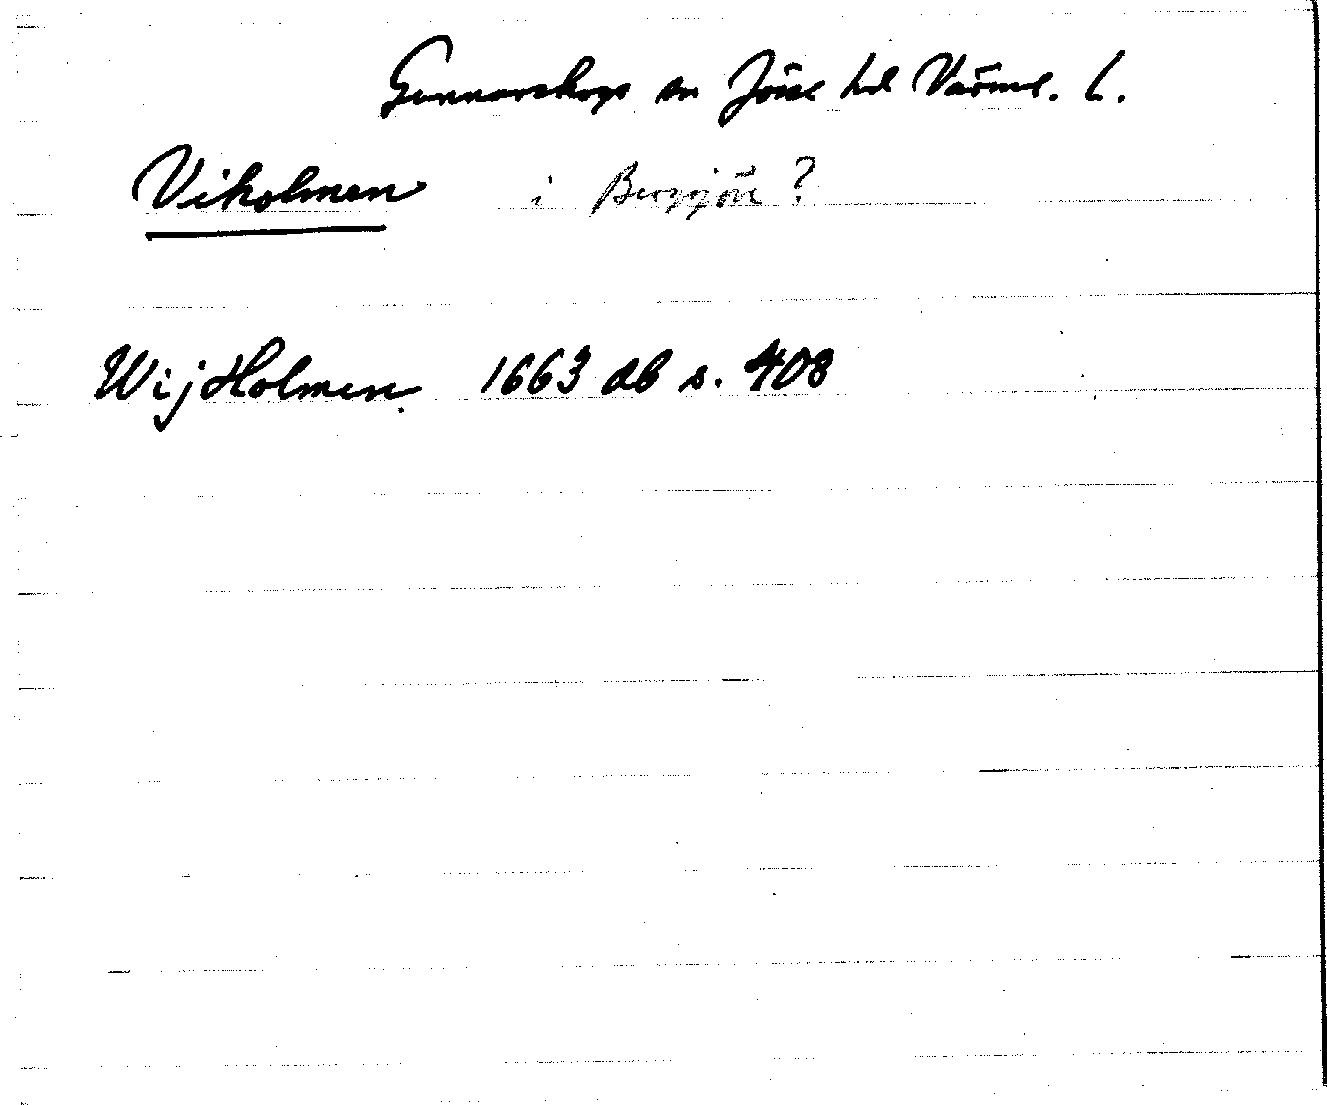 Gunnarskogs sn Jöse hd Värml. l.
Vikolmen i Bergsjön?
WijHolmen 1663 db s. 408